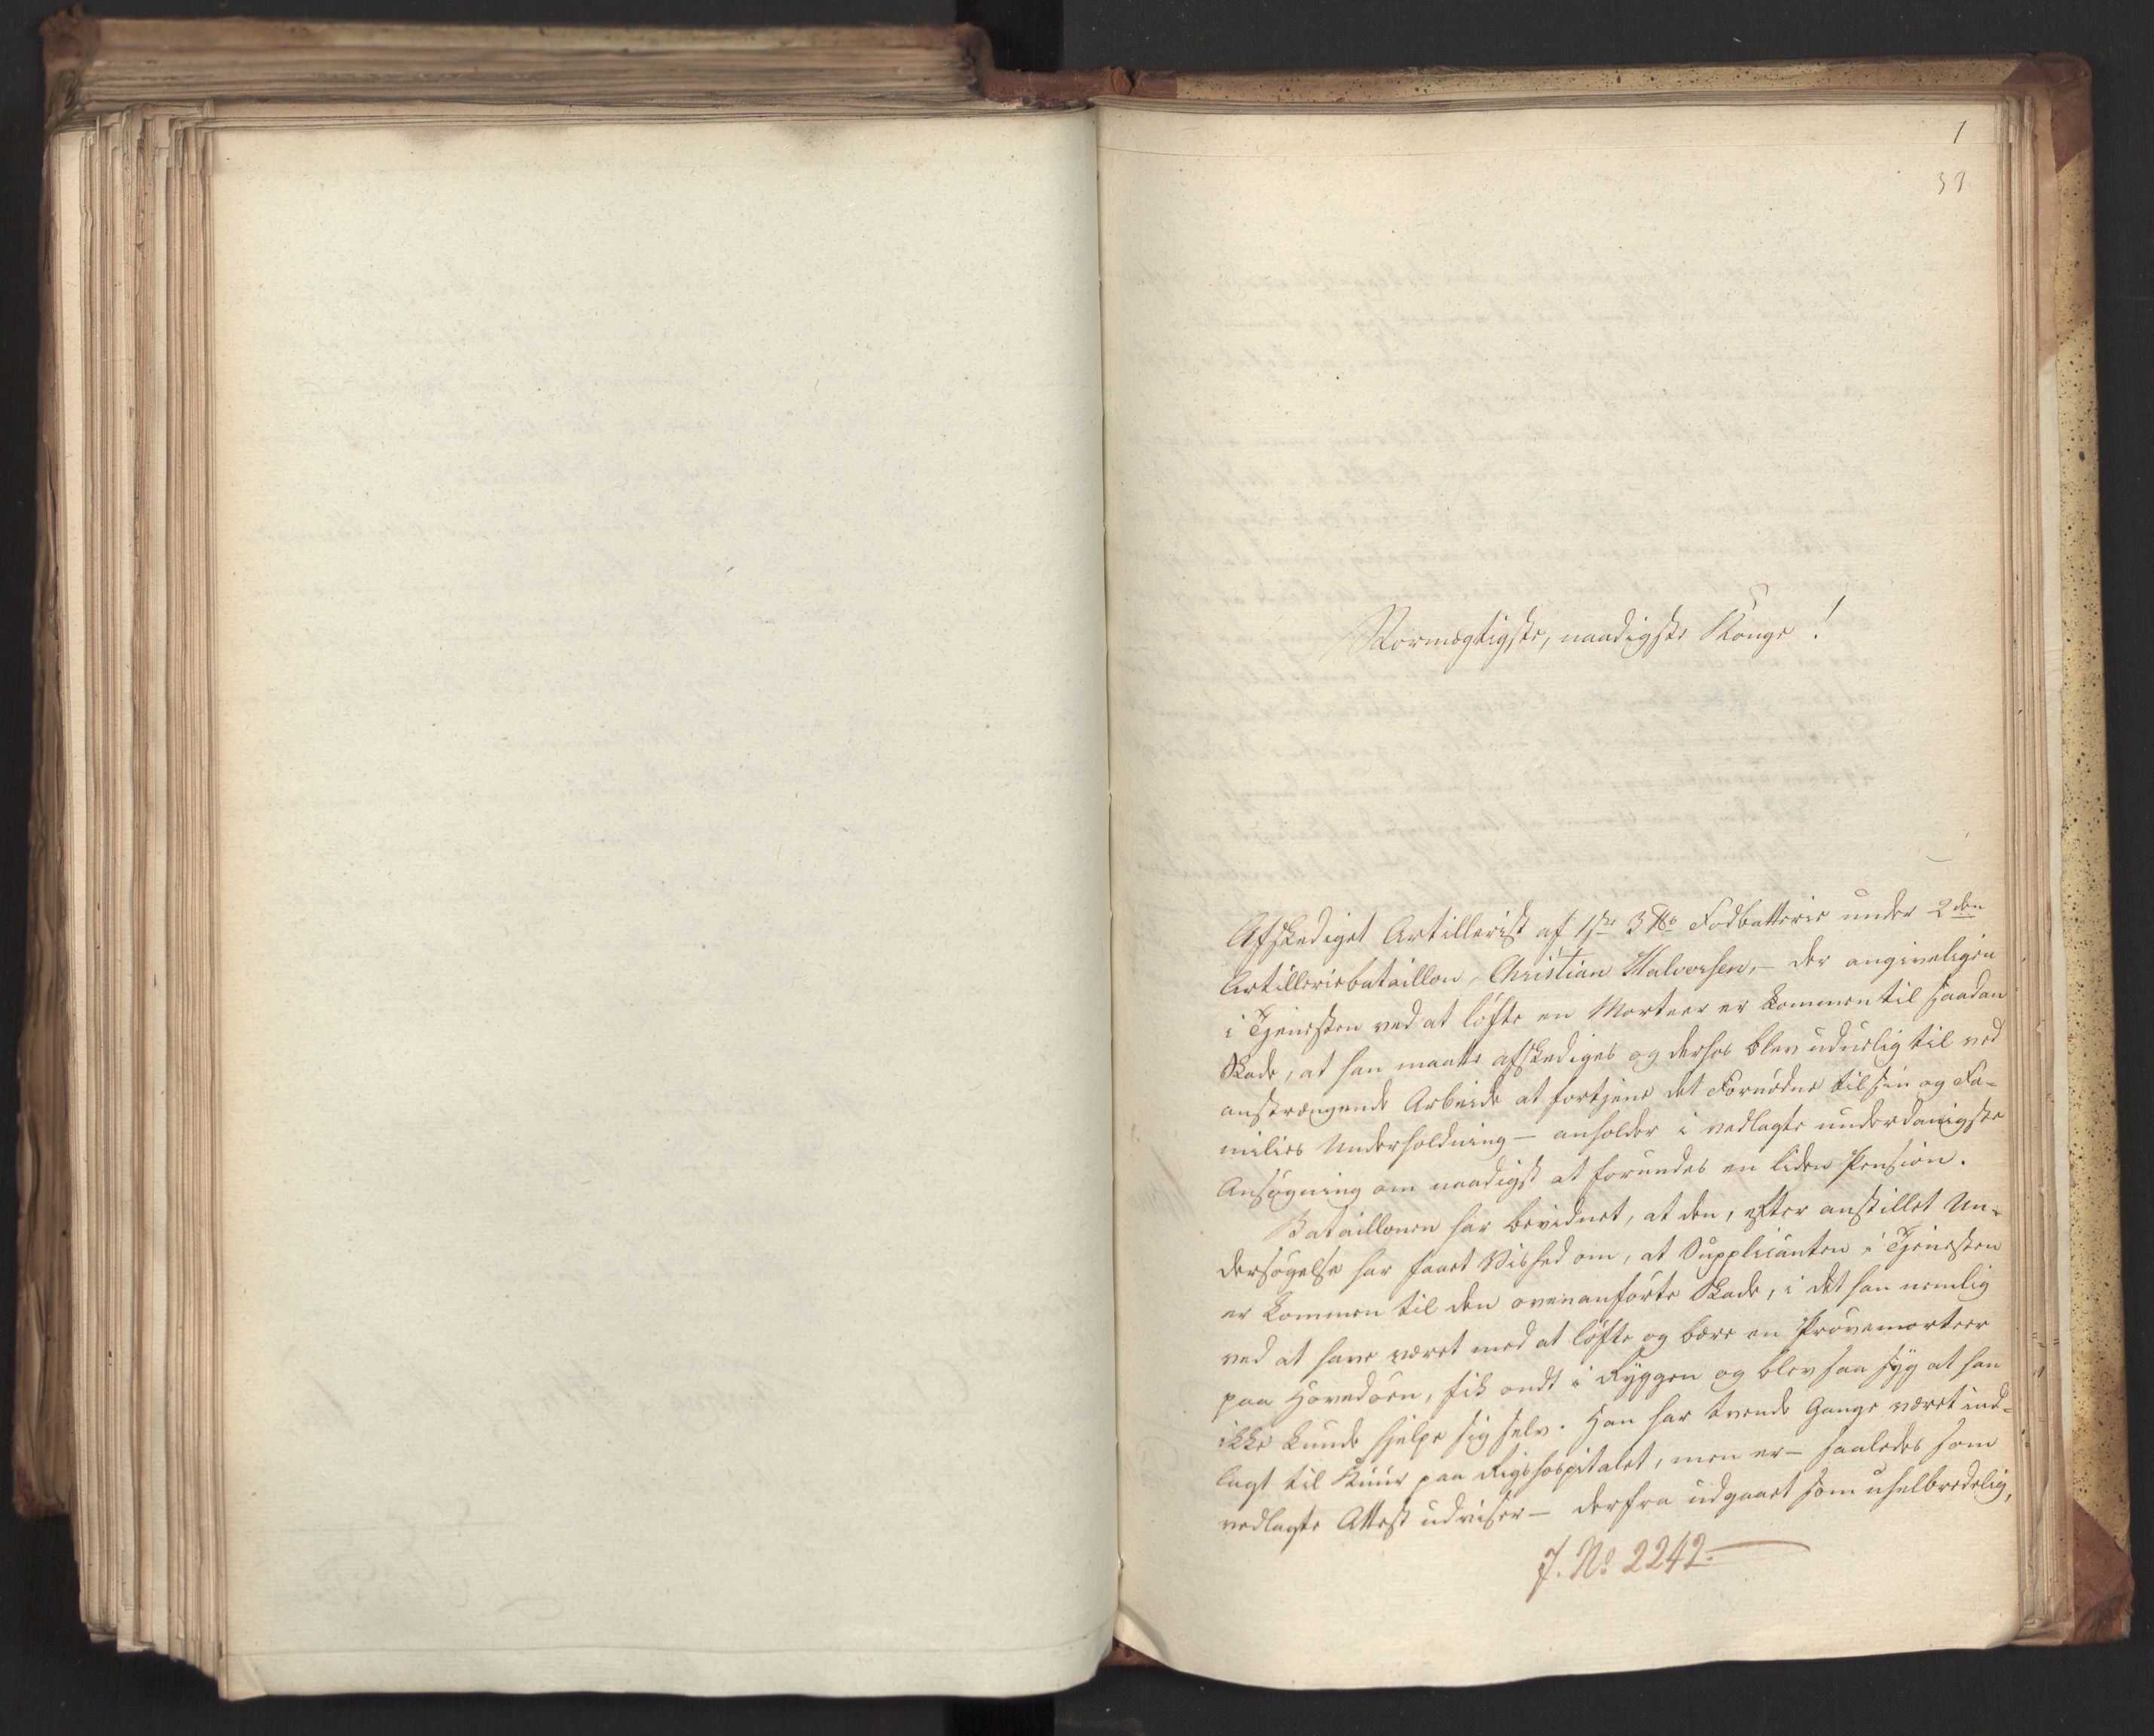 1
Stormægtigste, naadigste Konge!
Afskediget Artillerist af 1ste 3 ℔s Fodbatterie under 2den
Artilleriebataillon, Christian Halvorsen, – der angiveligen
i Tjenesten ved at löfte en Morteer er kommen til saadan
Skade, at han maatte afskediges og derhos blev uduelig til ved
anstrængende Arbeide at fortjene det Fornödne til sin og Fa-
milies Underholdning – anholder i vedlagte underdanigste
Ansøgning om naadigst at forundes en liden Pension.
Bataillonen har bevidnet, at den, efter anstillet Un-
dersøgelse har faaet Vished om, at Supplicanten i Tjenesten
er kommen til den ovenanförte Skade, i det han nemlig
ved at have været med at löfte og bære en Prövemorteer
paa Hovedöen, fik ondt i Ryggen og blev saa syg at han
ikke kunde hjelpe sig selv. Han har tvende Gange været ind-
lagt til Kuur paa Rigshospitalet, men er – saaledes som
vedlagte Attest udviser – derfra udgaaet som uhelbredelig,
J. No 2242.